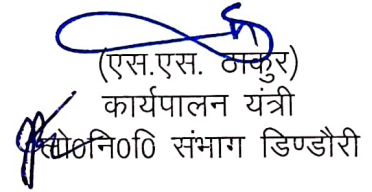 (एस.एस. ठाकुर)
कार्यपालन यंत्री
लो०नि०वि० संभाग डिण्डौरी